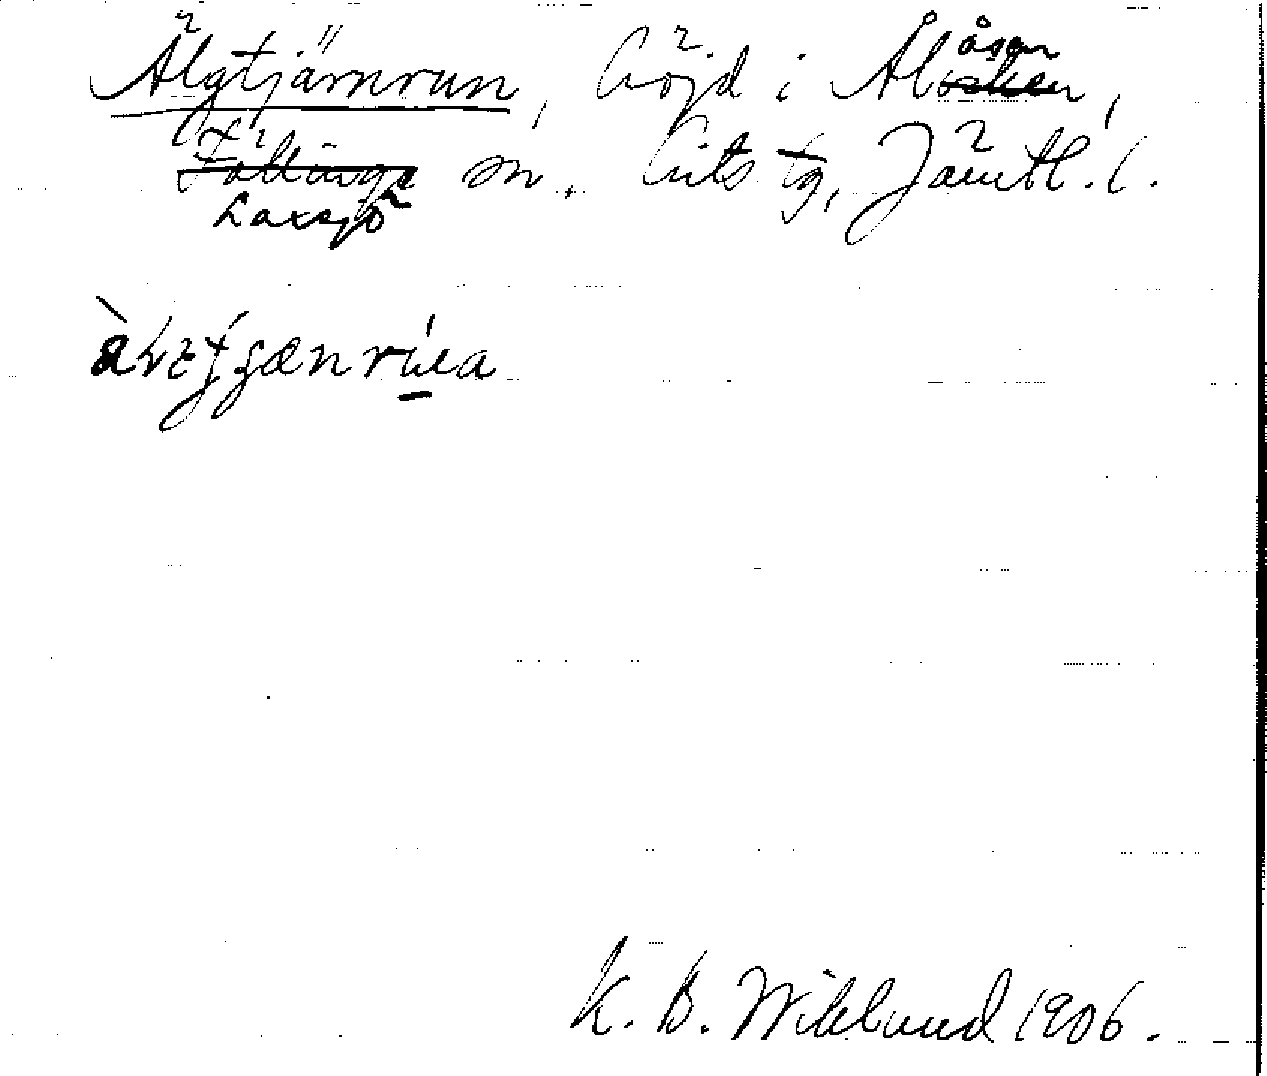 Älgtjärnrun, höjd i Ålåsen,
Föllinge sn. Lits tg, Jämtl. l.
Laxsjö
K. B. Wiklund 1906.